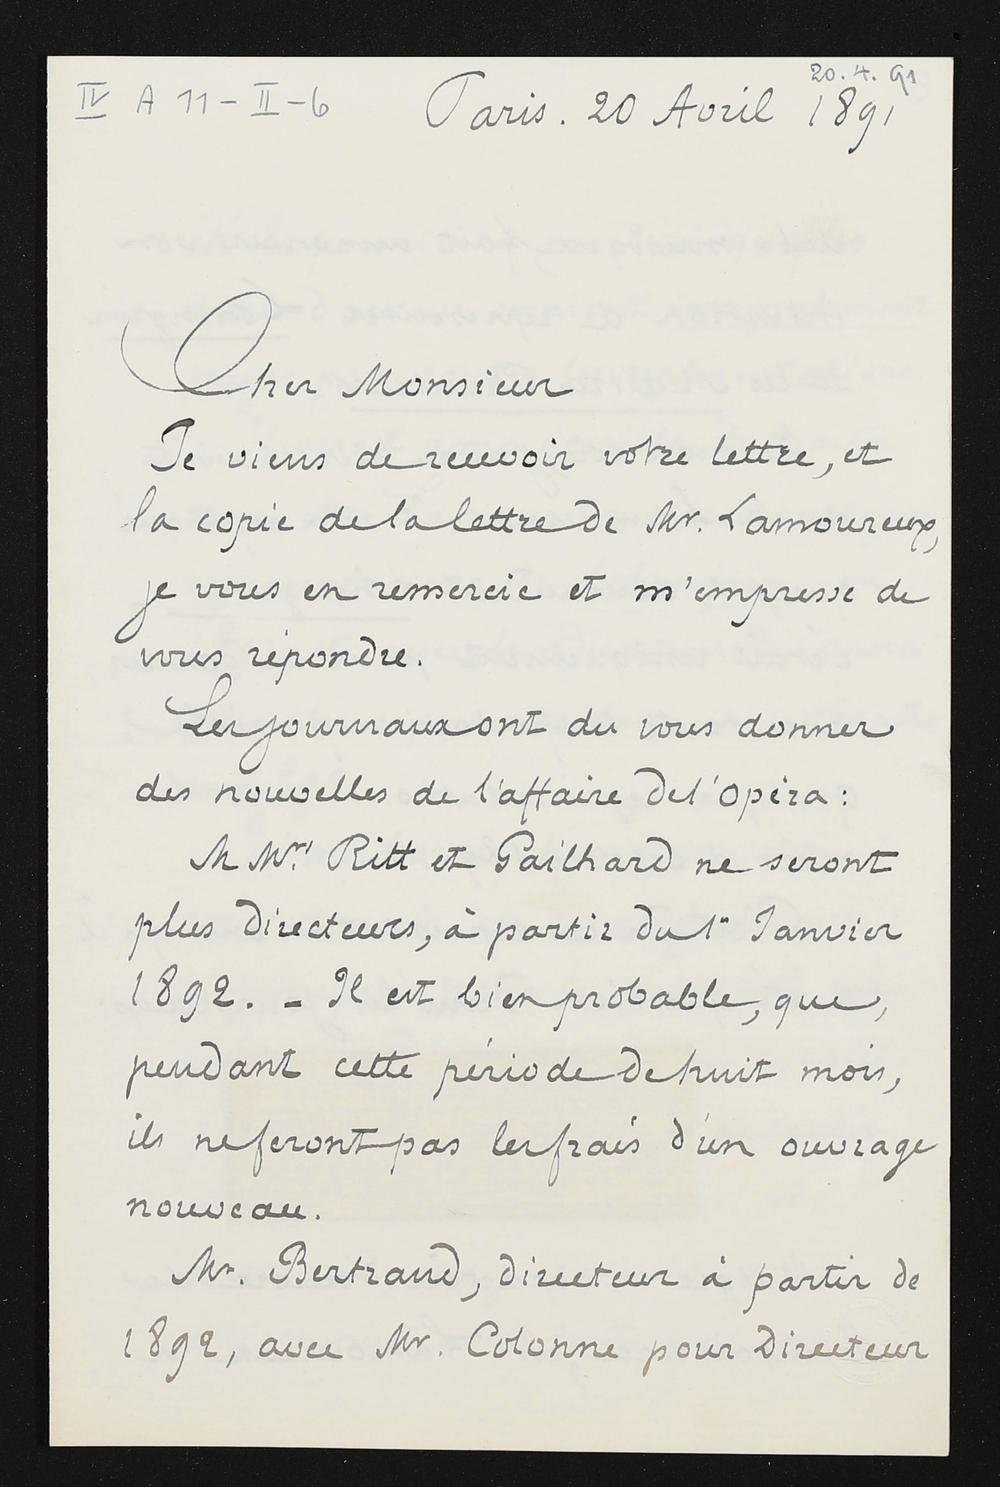 20.4.91
IV A 11-II-6
Paris. 20 Avril 1891
Cher Monsieur
Je viens de recevoir votre lettre, et
la copie de la lettre de Mr. Lamoureux,
je vous en remercie et m'empresse de
vous répondre.
Les journaux ont du vous donner
des nouvelles de l'affaire de l'Opéra :
M Mrs Ritt et Gailhard ne seront
plus directeurs, à partir du 1er Janvier
1892. - Il est bien probable, que,
pendant cette période de huit mois,
ils ne feront pas les frais d'un ouvrage
nouveau.
Mr. Bertrand, directeur à partir de
1892, avec Mr. Colonne pour Directeur